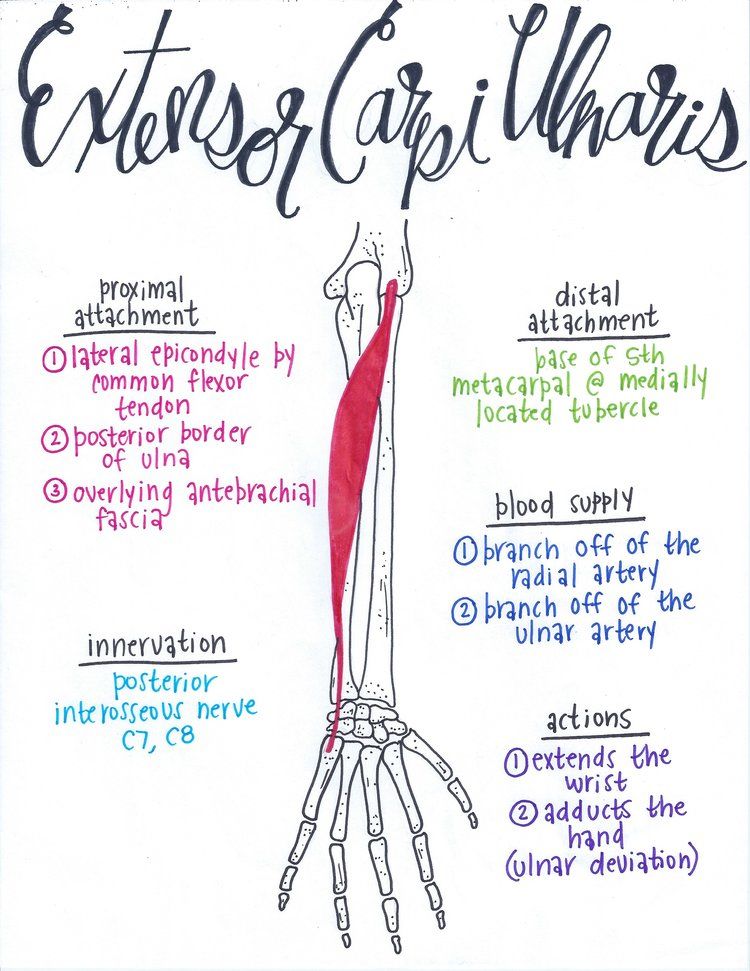 Extensor Carpi Ulnaris
proximal
attachment
① lateral epicondyle by
common flexor
tendon
② posterior border
of ulna
③ overlying antebrachial
fascia
innervation
posterior
interosseous nerve
C7, C8
distal
attachment
base of 5th
metacarpal @ medially
located tubercle
blood supply
① branch off of the
radial artery
② branch off of the
ulnar artery
actions
① extends the
wrist
② adducts the
hand
(ulnar deviation)